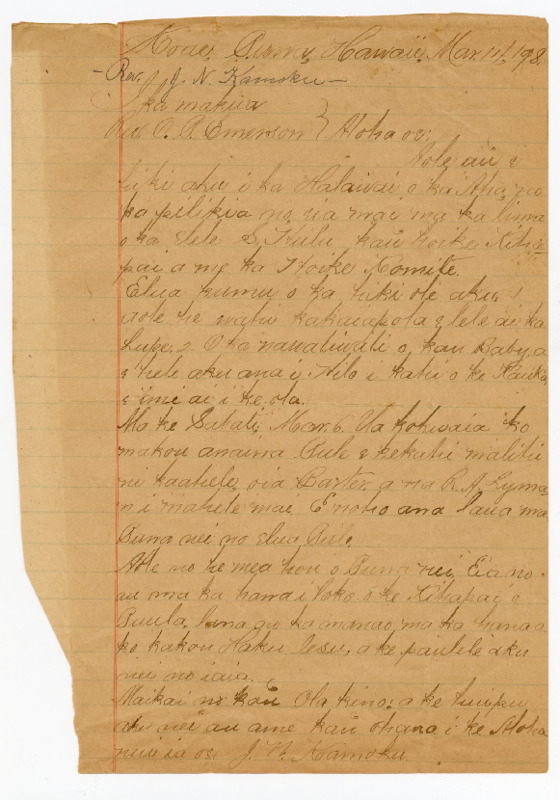 Puna, Hawaii, Mar. 11, 198
Rev. J. N. Kamoku
ka makua
Rev O. P. Emerson } Aloha oe:
Aole au e
hiki aku i ka Halawai o ka Aha, no
ka pilikia no nae mai ma ka lima
o ka elele S. Kulu, kau hoike Kiha
pai a me ka Hoike Komite.
Elua kumu o ka hiki ole aku, 1
aole he wahi e lele ai ka
2. O ka nawaliwali o kau Baby, a
e hele aku ana i Hilo i kahi o ke Kauka
e imi ai i ke ola.
Ma ke Sabati, Mar. 6. Ua kokuaia ko
makou anaina Pule e kekahi malihi
ni kaahele, oia Barter, a na R. A. Lyma
n i mahele mai. E noho ana laua ma
Puna nei no elua Pule.
Aole no he mea hou o Puna nei, Eia no
au ma ka hana i loko o ke Kihapai o
Puula. ka manao, ma ka hana a
ko kakou Haku Iesu, a ke paulele aku
nei no iaia.
Maikai no kou Ola kino; a ke huipu
aku nei au ame kau ohana i ke Aloha
nui ia oe. J. N. Kamoku.